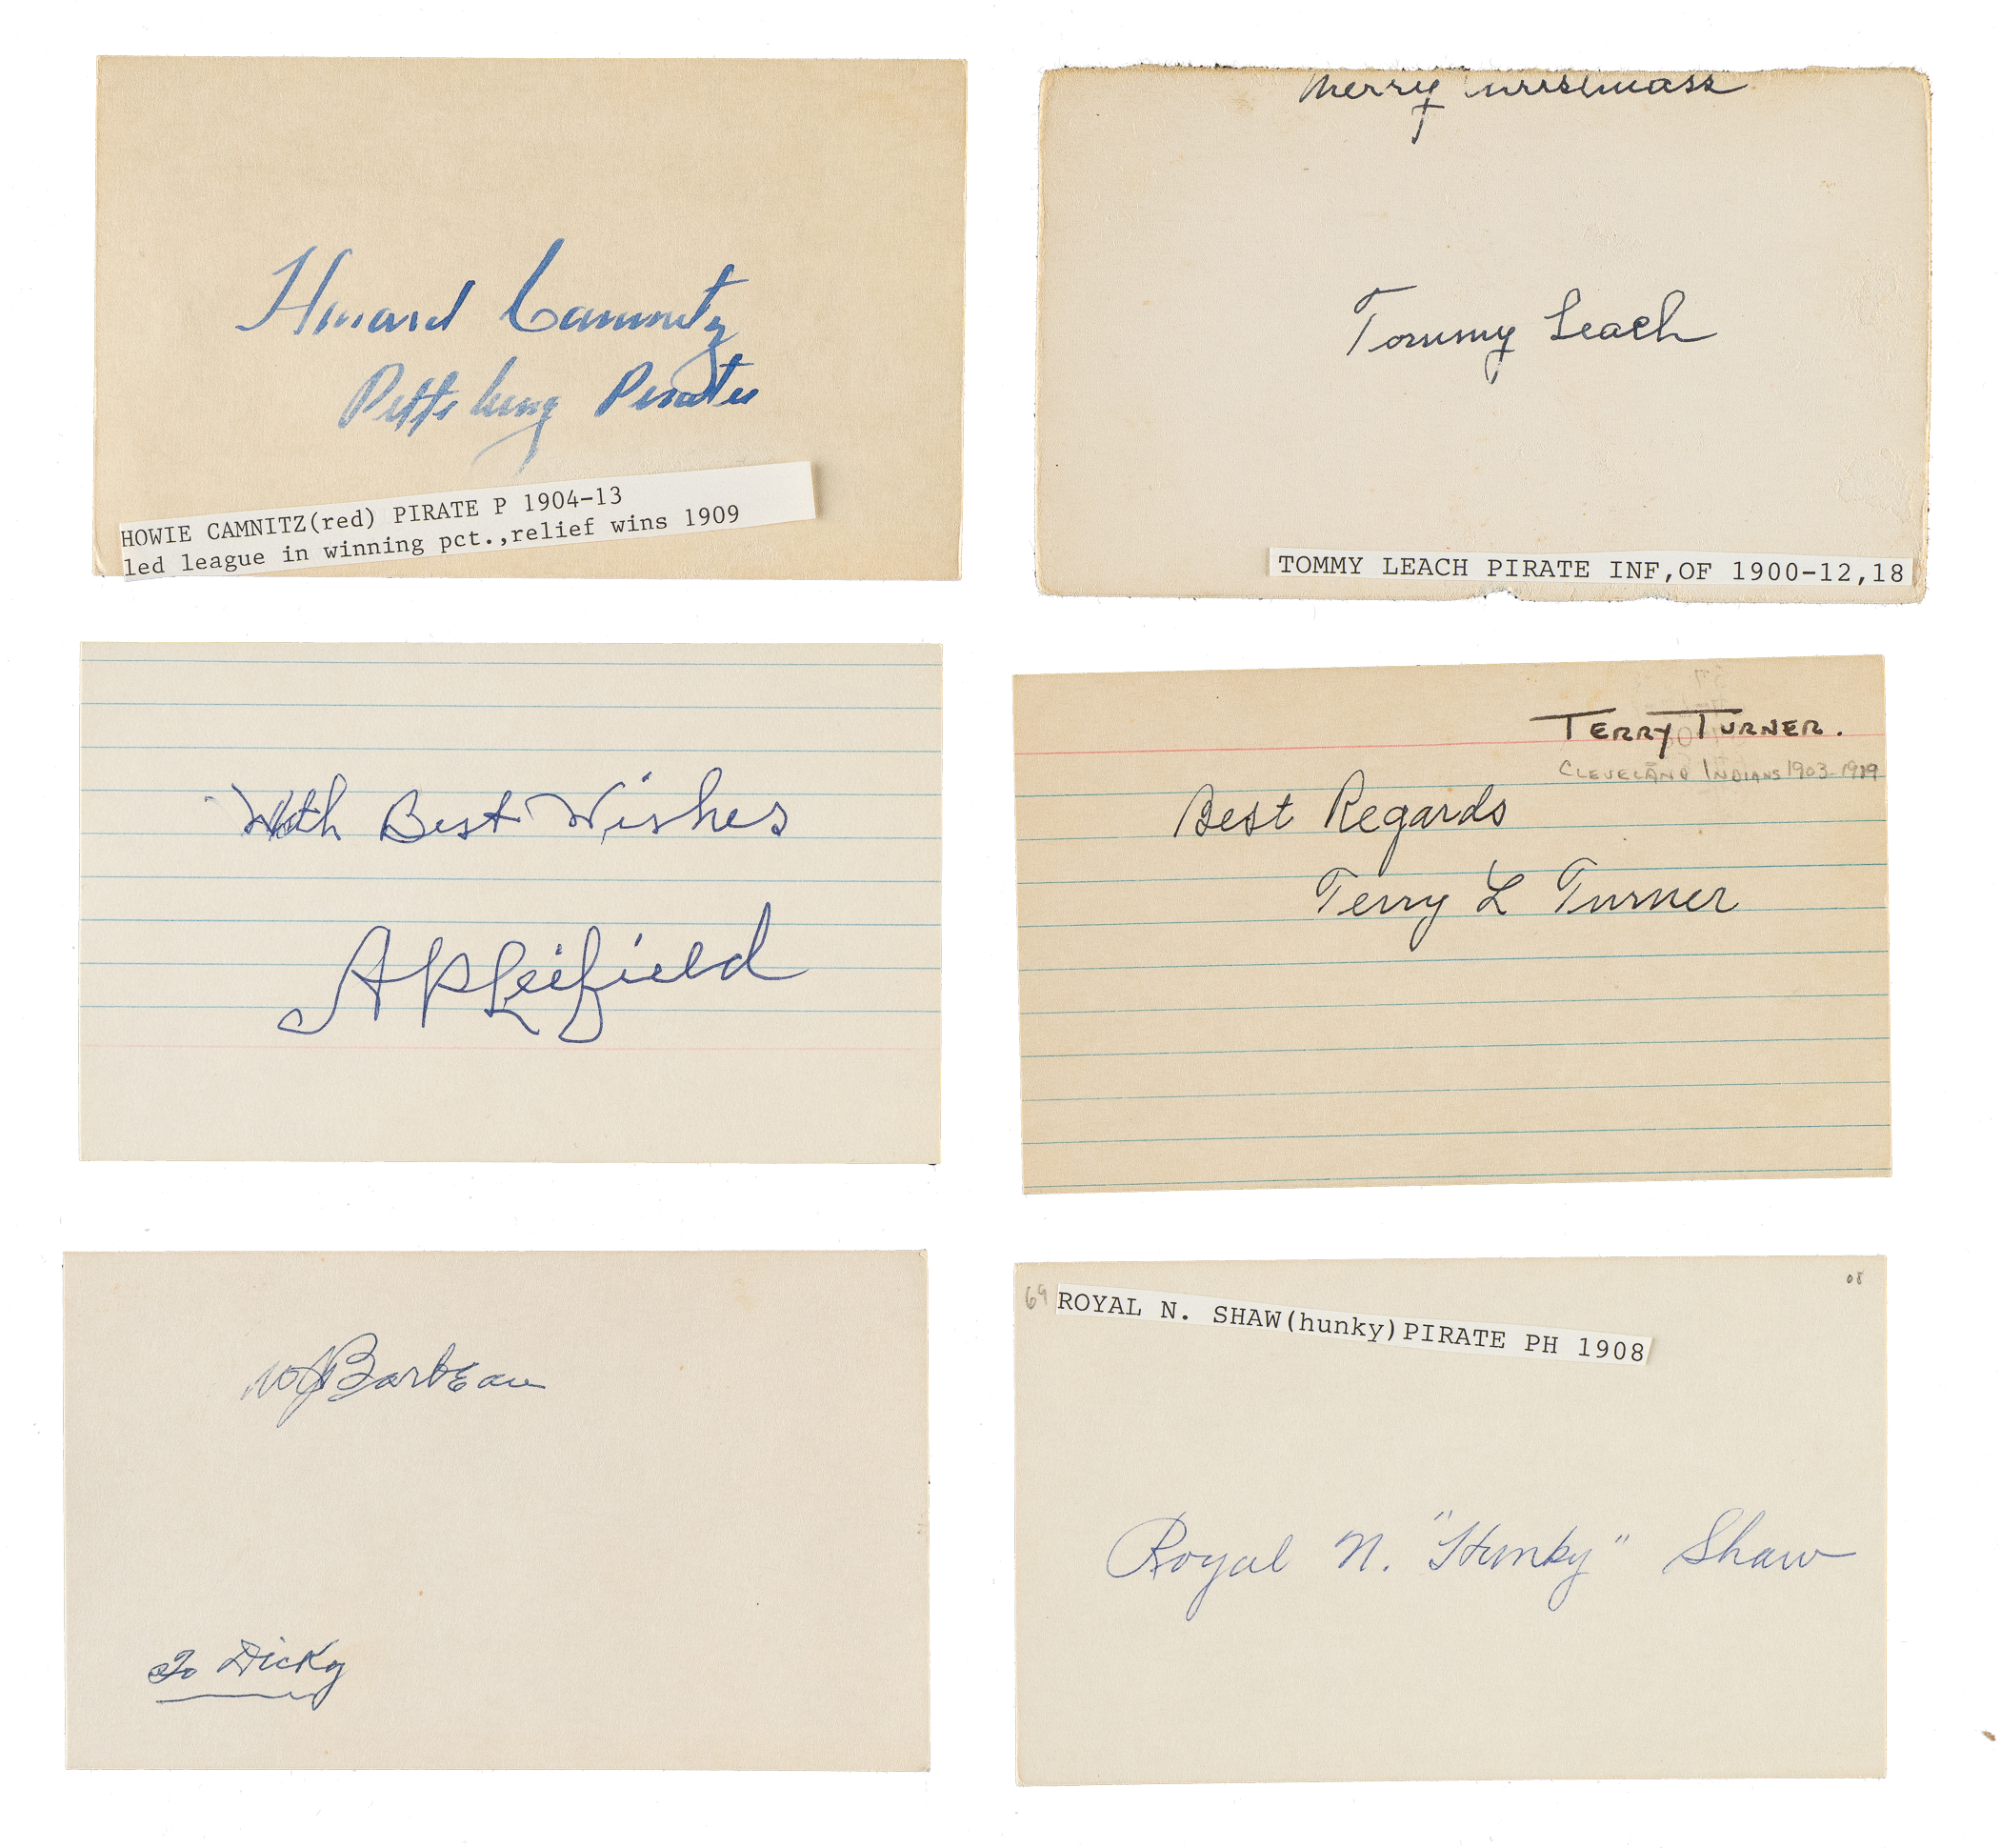 Howard Camnitz
Pittsburg Pirates
HOWIE CAMNITZ(red) PIRATE P 1904-13
led league in winning pct.,relief wins 1909
Merry
Tommy Leach
TOMMY LEACH PIRATE INF,OF 1900-12,18
With Best Wishes
A P Leifield
TERRY TURNER.
CLEVELAND INDIANS 1903-1919
Best Regards
Terry L Turner
W J Barbeau
To Dicky
69
08
ROYAL N. SHAW(hunky)PIRATE PH 1908
Royal N. "Hunky" Shaw